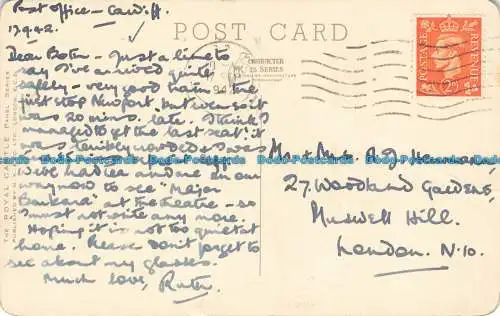 Post Office - Cardiff
17.9.42.
POST CARD
Dear Both - Just a line to
say I've arrived quite
safely - very good train - the
first stop Newport, but even so it
was 20 mins. late. I think I
managed to get the last seat! it
was terribly crowded & I was
We've had tea and are on our
way now to see "Major
Barbara" at the theatre - so
must not write any more.
Hoping it is not too quiet at
home. Please don't forget to
see about my glasses.
Much love,
THE ROYAL CASTLE PANEL SERIES
CHARACTER
SERIES
POSTAGE
REVENUE
2D
Mr & Mrs. R. J.
27, Woodland Gardens,
Muswell Hill.
London. N.10.
Bods-Postcards